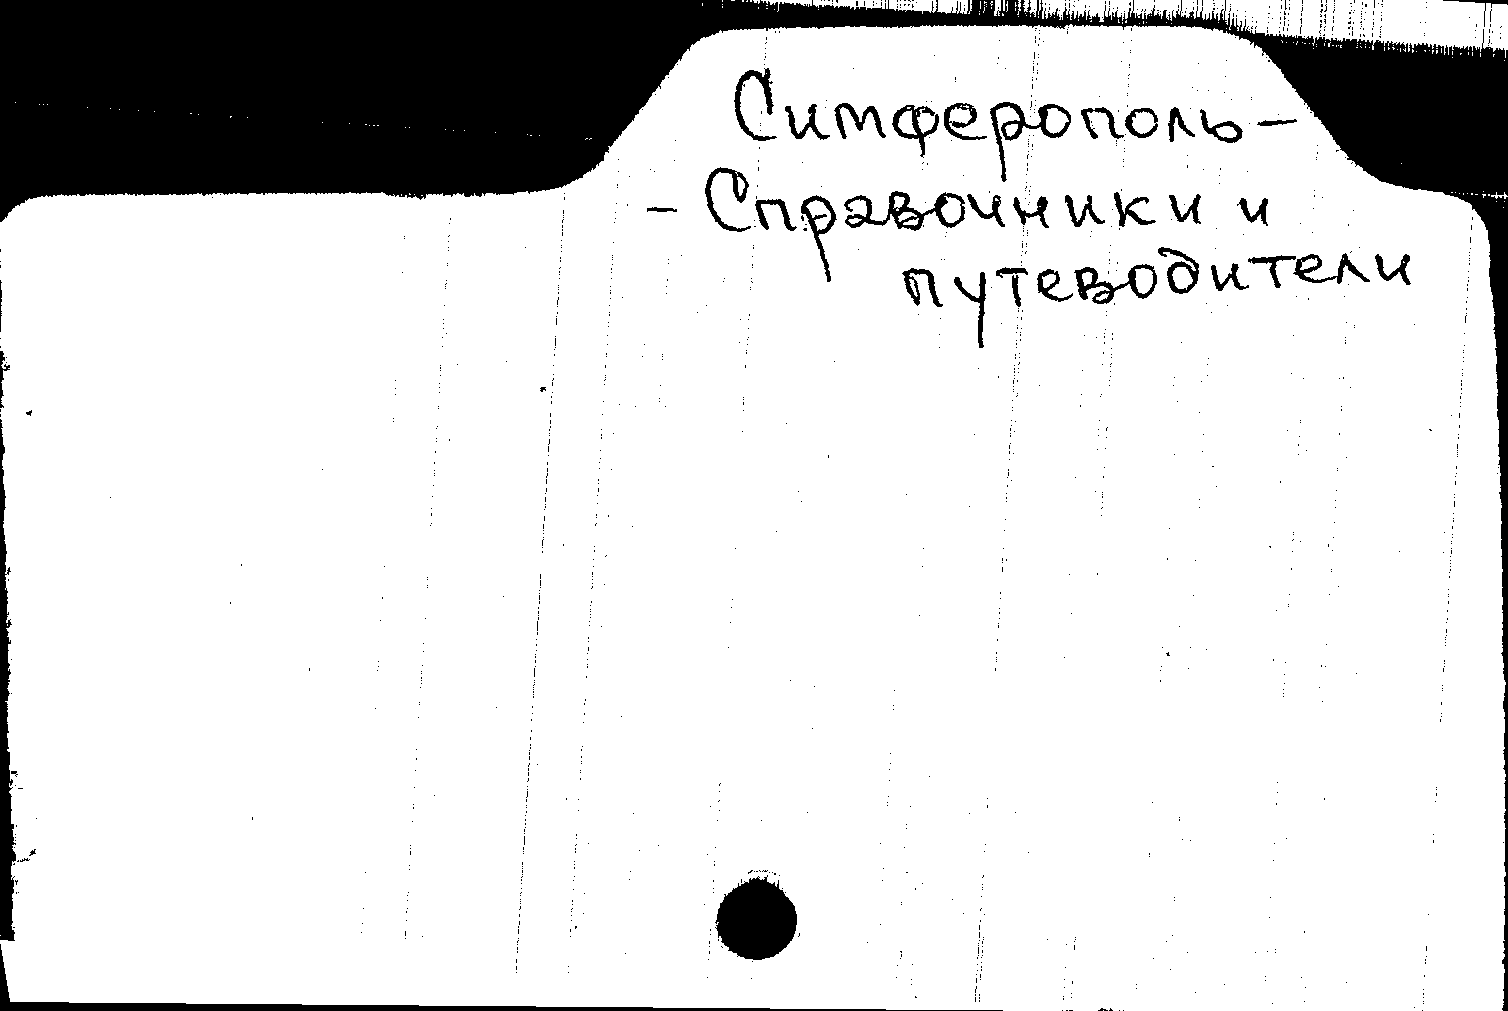 Симферополь-
- Справочники и
путеводители